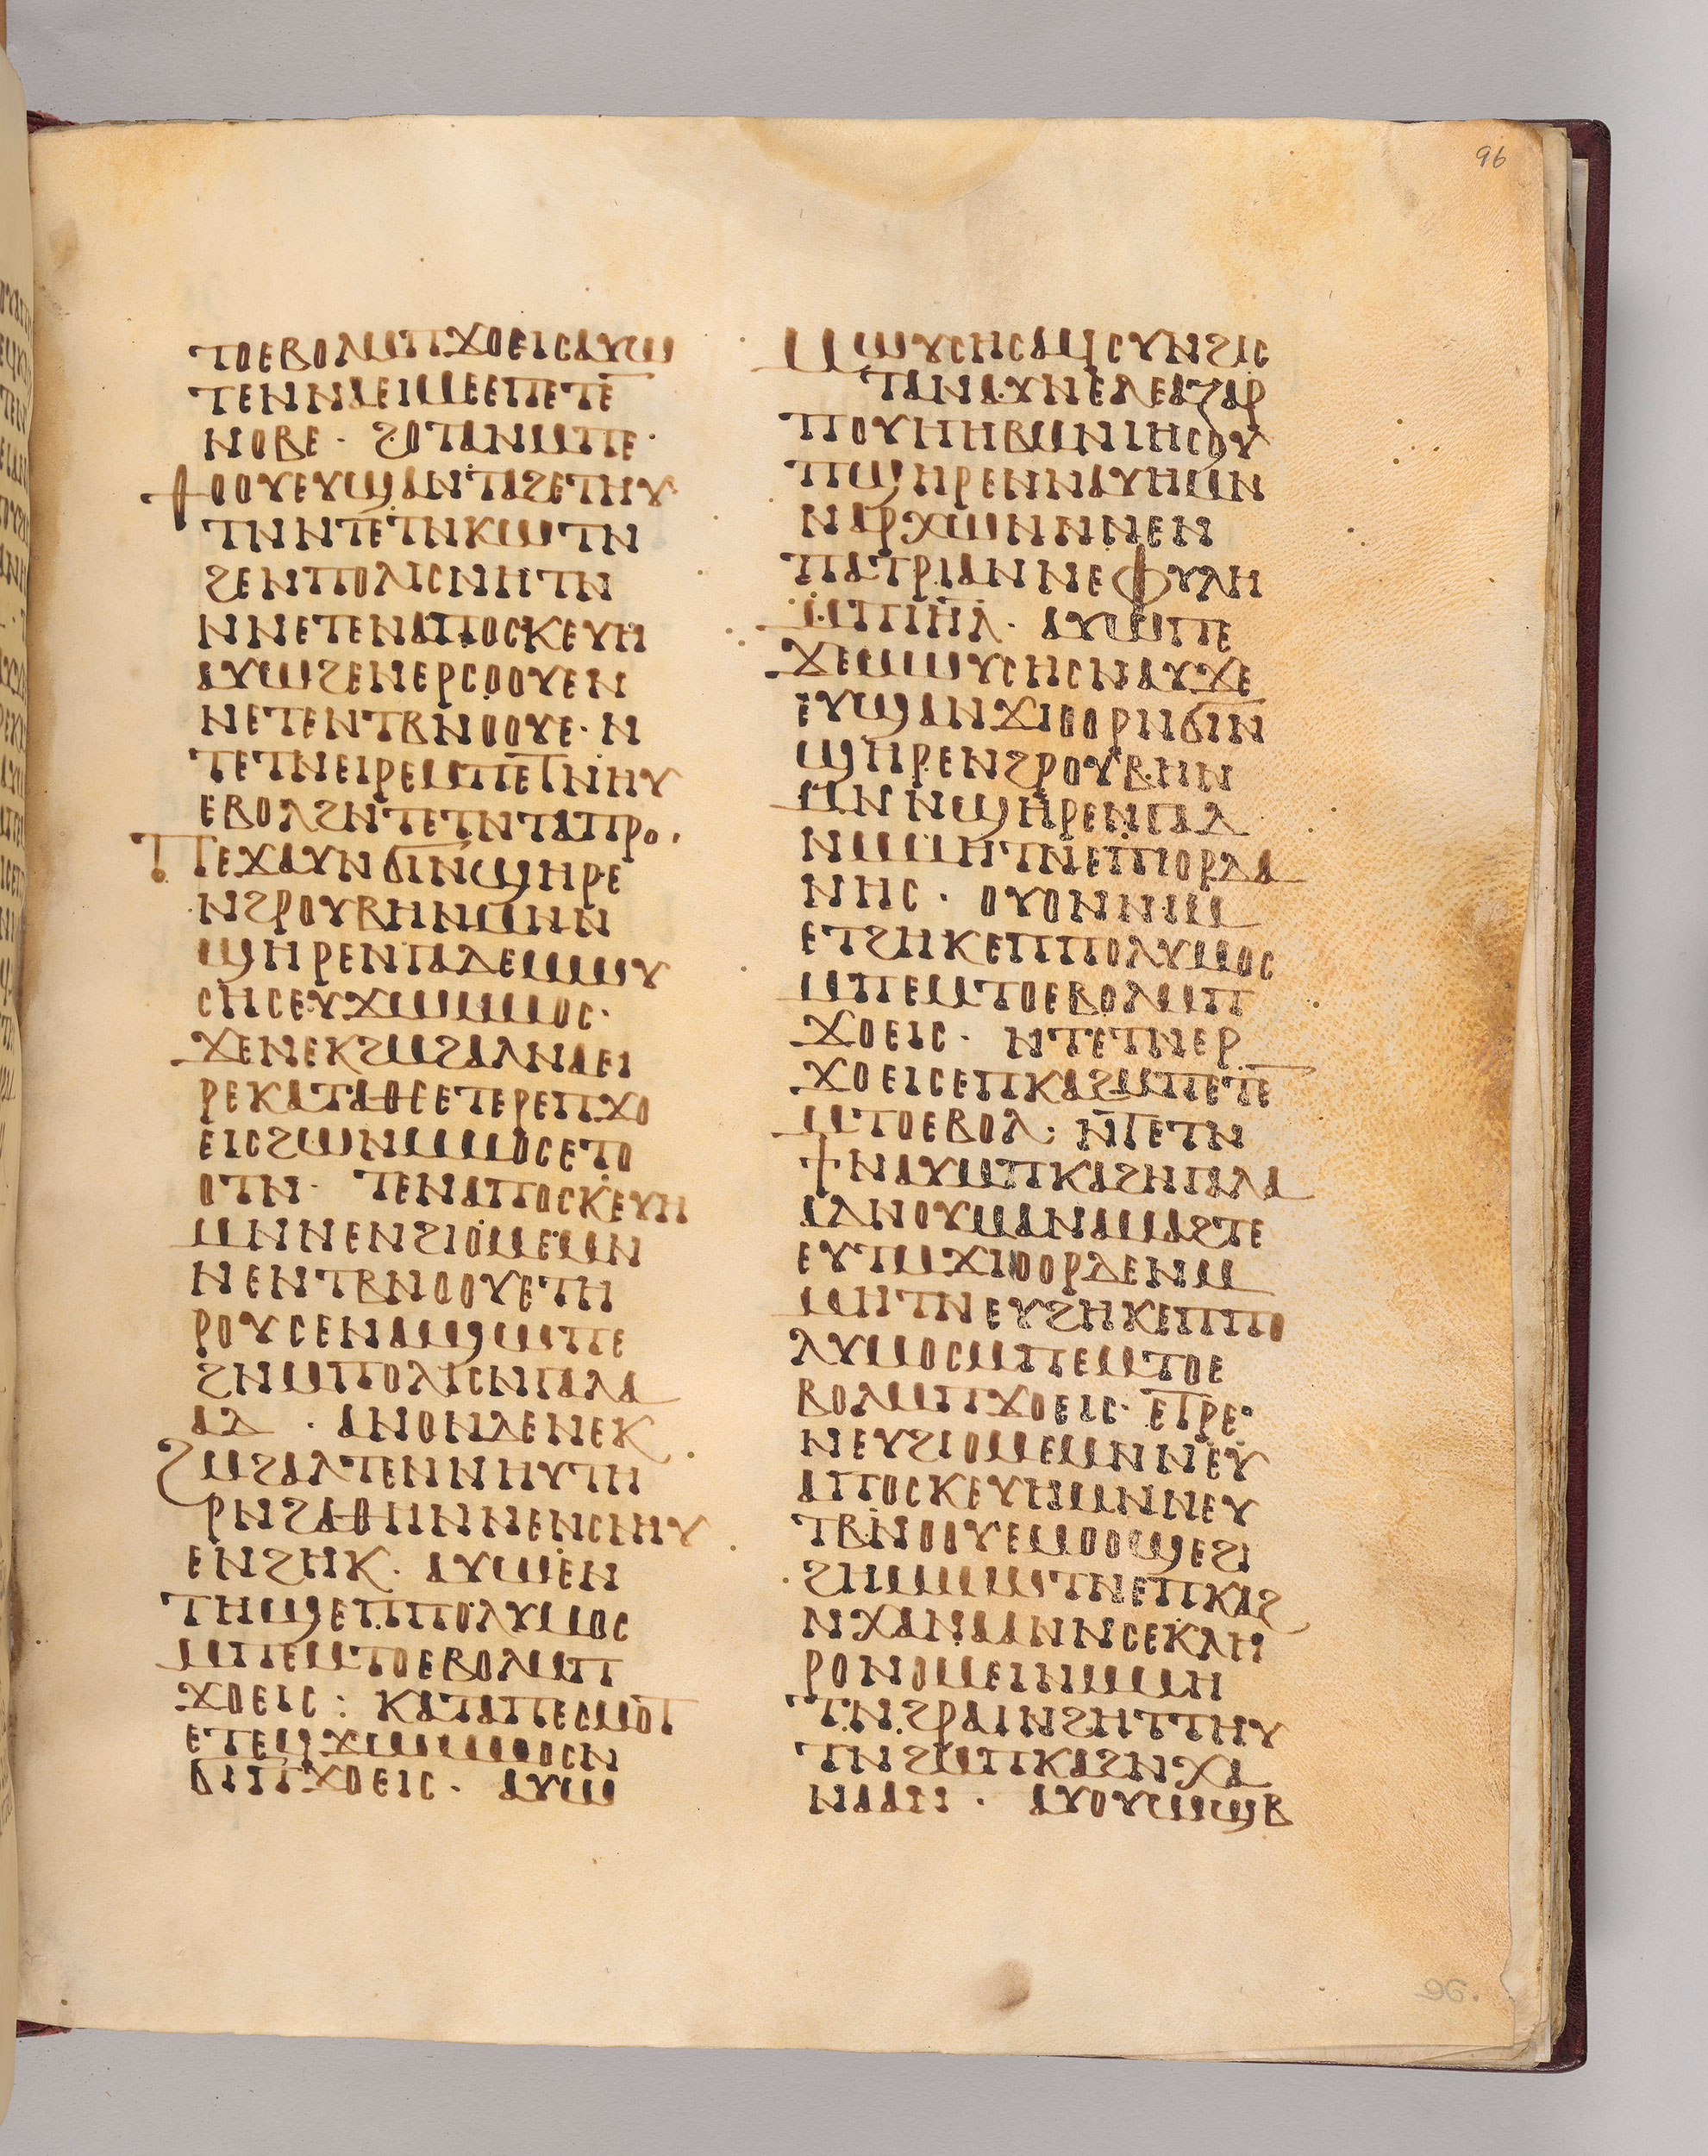 96
ⲧⲟⲉⲃⲟⲗⲙⲡϫⲟⲉⲓⲥⲁⲩⲱ
ⲧⲉⲛⲛⲁⲉⲓⲙⲉⲉⲡⲉⲧⲉ
ⲛⲟⲃⲉ · ϩⲟⲧⲁⲛⲙⲡⲉ·
ⲑⲟⲟⲩⲉⲩϣⲁⲛⲧⲁϩⲉⲧⲏⲩ
ⲧⲛⲛⲧⲉⲧⲛⲕⲱⲧⲛ
ϩⲉⲛⲡⲟⲗⲓⲥⲛⲏⲧⲛ
ⲛⲛⲉⲧⲉⲛⲁⲡⲟⲥⲕⲉⲩⲏ
ⲁⲩⲱϩⲉⲛⲉⲣⲥⲟⲟⲩⲉⲛ
ⲛⲉⲧⲉⲛⲧⲃⲛⲟⲟⲩⲉ·ⲛ
ⲧⲉⲧⲛⲉⲓⲣⲉⲙⲡⲉⲧⲛⲏⲩ
ⲉⲃⲟⲗϩⲛⲧⲉⲧⲛⲧⲁⲡⲣⲟ·
ⲡⲉϫⲁⲩⲛϭⲓⲛϣⲏⲣⲉ
ⲛϩⲣⲟⲩⲃⲏⲛⲙⲛⲛ
ϣⲏⲣⲉⲛⲅⲁⲇⲉⲙⲱⲩ
ⲥⲏⲥⲉⲩϫⲱⲙⲙⲟⲥ·
ϫⲉⲛⲉⲕϩⲙϩⲁⲗⲛⲁⲉⲓ
ⲣⲉⲕⲁⲧⲁⲑⲉⲉⲧⲉⲣⲉⲡϫⲟ
ⲉⲓⲥϩⲱⲛⲙⲙⲟⲥⲉⲧⲟ
ⲟⲧⲛ· ⲧⲉⲛⲁⲡⲟⲥⲕⲉⲩⲏ
ⲙⲛⲛⲉⲛϩⲓⲟⲙⲉⲙⲛ
ⲛⲉⲛⲧⲃⲛⲟⲟⲩⲉⲧⲏ
ⲣⲟⲩⲥⲉⲛⲁϣⲱⲡⲉ
ϩⲛⲙⲡⲟⲗⲓⲥⲛⲅⲁⲗⲁ
ⲁⲇ · ⲁⲛⲟⲛⲇⲉⲛⲉⲕ
ϩⲙϩⲁⲗⲧⲉⲛⲛⲏⲩⲧⲏ
ⲣⲛϩⲁⲑⲏⲛⲛⲉⲛⲥⲛⲏⲩ
ⲉⲛϩⲏⲕ· ⲁⲩⲱⲉⲛ
ⲧⲏϣⲉⲡⲡⲟⲗⲩⲙⲟⲥ
ⲙⲡⲉⲙⲧⲟⲉⲃⲟⲗⲙⲡ
ϫⲟⲉⲓⲥ: ⲕⲁⲧⲁⲡⲉⲥⲙⲟⲧ
ⲉⲧⲉϥϫⲱⲙⲙⲟⲥⲛ
ϭⲓⲡϫⲟⲉⲓⲥ· ⲁⲩⲱ
ⲙⲱⲩⲥⲏⲥⲁϥⲥⲩⲛϩⲓⲥ
ⲧⲁⲛⲁⲩⲛⲉⲗⲉⲁⲍⲁⲣ
ⲡⲟⲩⲏⲏⲃⲙⲛⲓⲏⲥⲟⲩ
ⲡϣⲏⲣⲉⲛⲛⲁⲩⲏⲙⲛ
ⲛⲁⲣⲭⲱⲛⲛⲛⲉⲛ
ⲡⲁⲧⲣⲓⲁⲛⲛⲉⲫⲩⲗⲏ
ⲙⲡⲓⲏⲗ· ⲁⲩⲱⲡⲉ
ϫⲉⲙⲱⲩⲥⲏⲥⲛⲁⲩϫⲉ
ⲉⲩϣⲁⲛϫⲓⲟⲟⲣⲛϭⲓⲛ
ϣⲏⲣⲉⲛϩⲣⲟⲩⲃⲏⲛ
ⲙⲛⲛϣⲏⲣⲉⲛⲅⲁⲇ
ⲛⲙⲙⲏⲧⲛⲉⲡⲓⲟⲣⲇⲁ
ⲛⲏⲥ· ⲟⲩⲟⲛⲛⲓⲙ
ⲉⲧϩⲏⲕⲉⲡⲡⲟⲗⲩⲙⲟⲥ
ⲙⲡⲉⲙⲧⲟⲉⲃⲟⲗⲙⲡ
ϫⲟⲉⲓⲥ· ⲛⲧⲉⲧⲛⲉⲣ
ϫⲟⲉⲓⲥⲉⲡⲕⲁϩⲙⲡⲉⲧⲉ
ⲙⲧⲟⲉⲃⲟⲗ: ⲛⲧⲉⲧⲛ
ϯⲛⲁⲩⲙⲡⲕⲁϩⲛⲅⲁⲗⲁ
ⲁⲇⲛⲟⲩⲙⲁⲛⲁⲙⲁϩⲧⲉ
ⲉⲩⲧⲙϫⲓⲟⲟⲣⲇⲉⲛⲙ
ⲙⲏⲧⲛⲉⲩϩⲏⲕⲉⲡⲡⲟ
ⲗⲩⲙⲟⲥⲙⲡⲉⲙⲧⲟⲉ
ⲃⲟⲗⲙⲡϫⲟⲉⲓⲥ· ⲉⲓⲣⲉ
ⲛⲉⲩϩⲓⲟⲙⲉⲙⲛⲛⲉⲩ
ⲁⲡⲟⲥⲕⲉⲩⲏⲙⲛⲛⲉⲩ
ⲧⲃⲛⲟⲟⲩⲉⲙⲟⲟϣⲉϩⲓ
ϩⲏⲙⲙⲱⲧⲛⲉⲡⲕⲁϩ
ⲛⲭⲁⲛⲁⲁⲛⲛⲥⲉⲕⲗⲏ
ⲣⲟⲛⲟⲙⲉⲓⲛⲙⲙⲏ
ⲧⲛϩⲣⲁⲓⲛϩⲏⲧⲧⲏⲩ
ⲧⲛϩⲙⲡⲕⲁϩⲛⲭⲁ
ⲛⲁⲁⲛ · ⲁⲩⲟⲩⲱϣⲃ